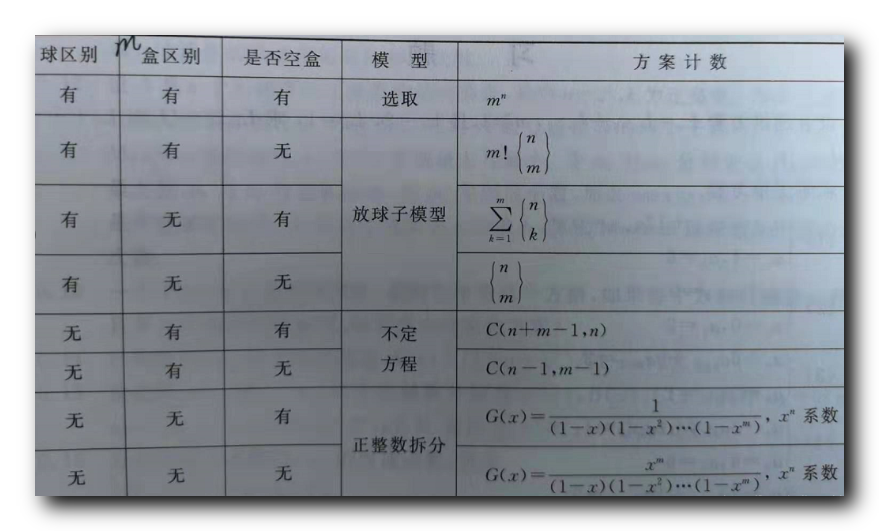 球区别 m 盒区别 是否空盒 模 型 方案计数
有 有 有 选取 mⁿ
有 有 无 m! {n m}
有 无 有 放球子模型 \sum_{k=1}^{m} {n k}
有 无 无 {n m}
无 有 有 不定 C(n+m−1,n)
无 有 无 方程 C(n−1,m−1)
无 无 有 G(x)=1/((1−x)(1−x²)⋯(1−xᵐ)), xⁿ 系数
正整数拆分
无 无 无 G(x)=xᵐ/((1−x)(1−x²)⋯(1−xᵐ)), xⁿ 系数